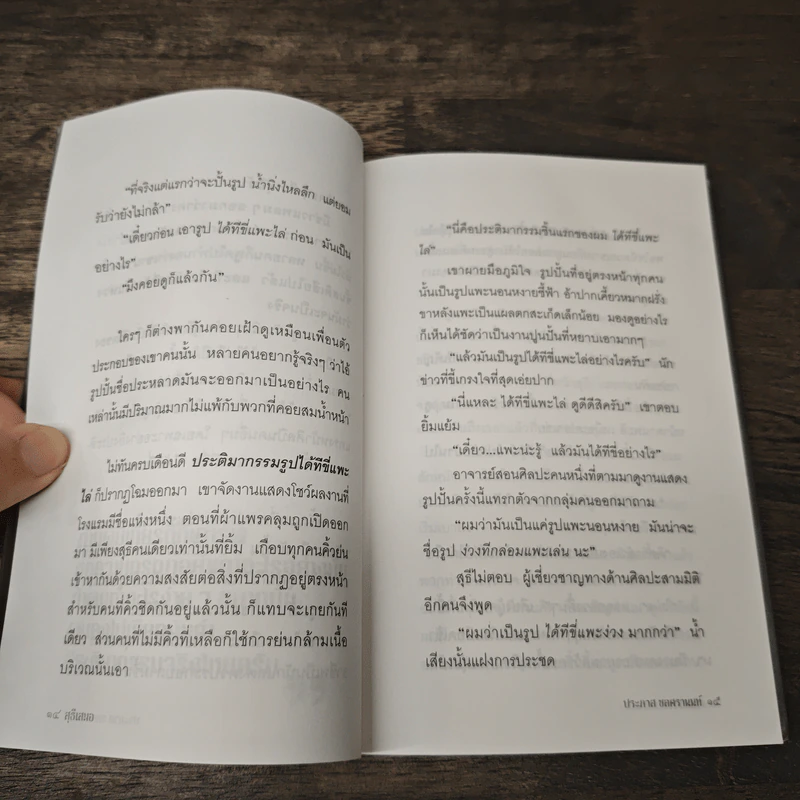 "ที่จริงแต่แรกว่าจะปั้นรูป น้ำนิ่งไหลลึก แต่ยอม
รับว่ายังไม่กล้า"
"เดี๋ยวก่อน เอารูป ได้ทีขี่แพะไล่ ก่อน มันเป็น
อย่างไร"
"มึงคอยดูก็แล้วกัน"
ใครๆ ก็ต่างพากันคอยเฝ้าดูเหมือนเพื่อนตัว
ประกอบของเขาคนนั้น หลายคนอยากรู้จริงๆ ว่าไอ้
รูปปั้นชื่อประหลาดมันจะออกมาเป็นอย่างไร คน
เหล่านั้นมีปริมาณมากไม่แพ้กับพวกที่คอยสมน้ำหน้า
ไม่ทันครบเดือนดี ประติมากรรมรูปได้ทีขี่แพะ
ไล่ ก็ปรากฏโฉมออกมา เขาจัดงานแสดงโชว์ผลงานที่
โรงแรมมีชื่อแห่งหนึ่ง ตอนที่ผ้าแพรคลุมถูกเปิดออก
มา มีเพียงสุธีคนเดียวเท่านั้นที่ยิ้ม เกือบทุกคนคิ้วย่น
เข้าหากันด้วยความสงสัยต่อสิ่งที่ปรากฏอยู่ตรงหน้า
สำหรับคนที่คิ้วชิดกันอยู่แล้วนั้น ก็แทบจะเกยกันที
เดียว ส่วนคนที่ไม่มีคิ้วที่เหลือก็ใช้การย่นกล้ามเนื้อ
บริเวณนั้นเอา
๑๔ สุธีเสมอ
"นี่คือประติมากรรมชิ้นแรกของผม ได้ทีขี่แพะ
ไล่"
เขาผายมือภูมิใจ รูปปั้นที่อยู่ตรงหน้าทุกคน
นั้นเป็นรูปแพะนอนหงายชี้ฟ้า อ้าปากเคี้ยวหมากฝรั่ง
ขาหลังแพะเป็นแผลตกสะเก็ดเล็กน้อย มองดูอย่างไร
ก็เห็นได้ชัดว่าเป็นงานปูนปั้นที่หยาบเอามากๆ
"แล้วมันเป็นรูปได้ทีขี่แพะไล่อย่างไรครับ" นัก
ข่าวที่ขี้เกรงใจที่สุดเอ่ยปาก
"นี่แหละ ได้ทีขี่แพะไล่ ดูดีดีสิครับ" เขาตอบ
ยิ้มแย้ม
"เดี๋ยว...แพะน่ะรู้ แล้วมันได้ทีอย่างไร"
อาจารย์สอนศิลปะคนหนึ่งที่ตามมาดูงานแสดง
รูปปั้นครั้งนี้แทรกตัวจากกลุ่มคนออกมาถาม
"ผมว่ามันเป็นแค่รูปแพะนอนหงาย มันน่าจะ
ชื่อรูป ง่วงทีกล่อมแพะเล่น นะ"
สุธีไม่ตอบ ผู้เชี่ยวชาญทางด้านศิลปะสามมิติ
อีกคนจึงพูด
"ผมว่าเป็นรูป ได้ทีขี่แพะง่วง มากกว่า" น้ำ
เสียงนั้นแฝงการประชด
ประภาส ชลศรานนท์ ๑๕